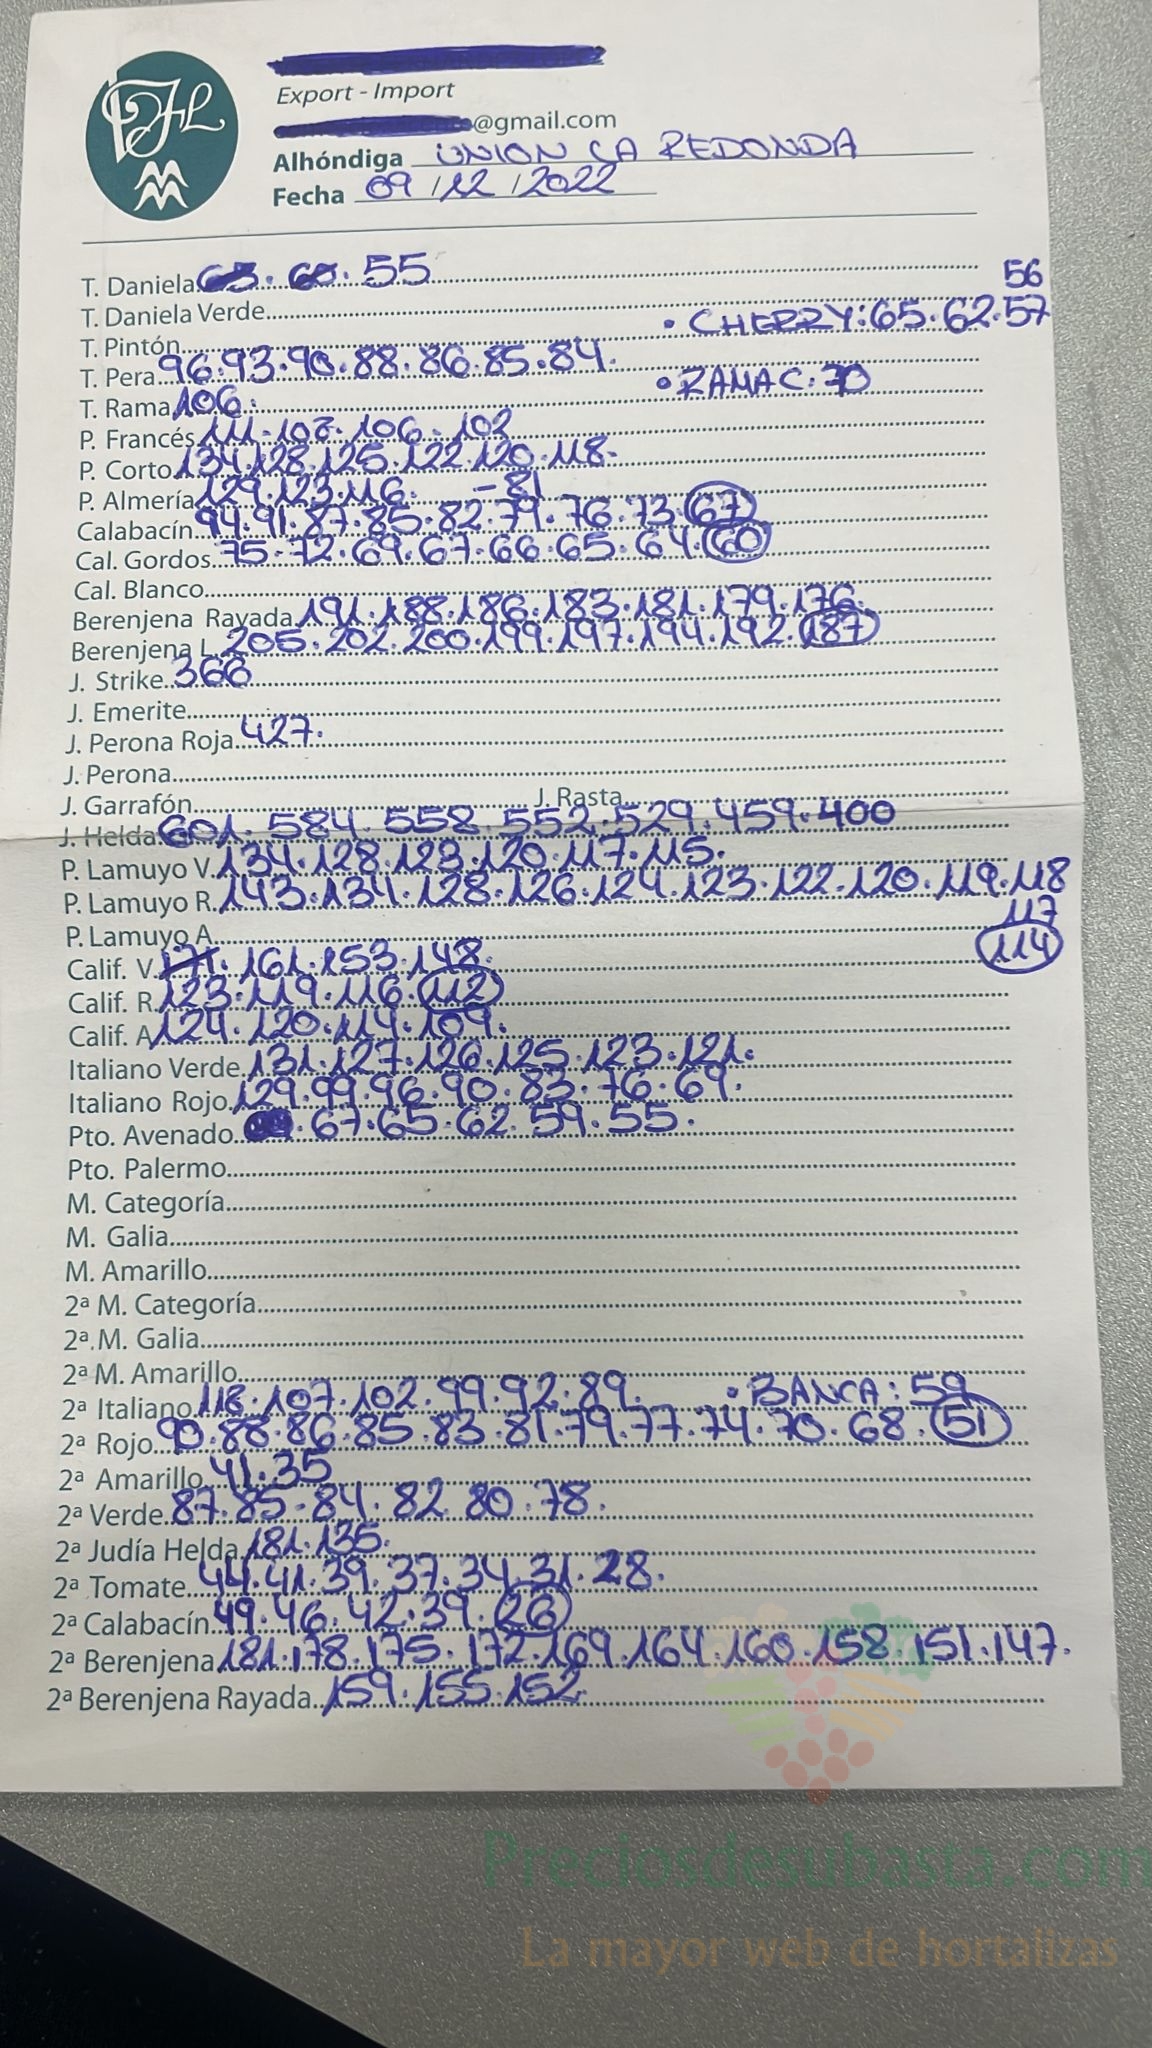 FHL
Export - Import
@gmail.com
Alhóndiga UNION LA REDONDA
Fecha 09/12/2022
T. Daniela 63. 60. 55
56
T. Daniela Verde
• CHERRY: 65. 62. 57
T. Pintón
T. Pera 96. 93. 90. 88. 86. 85. 84.
• RAMA C: 70
T. Rama 106.
P. Francés 111. 108. 106. 102
P. Corto 134. 128. 125. 122. 120. 118.
P. Almería 129. 123. 116. - 81
Calabacín 94. 91. 87. 85. 82. 79. 76. 73. 67
Cal. Gordos 75. 72. 69. 67. 66. 65. 64. 60
Cal. Blanco
Berenjena Rayada 191. 188. 186. 183. 181. 179. 176.
Berenjena L. 205. 202. 200. 199. 197. 194. 192. 187
J. Strike 366
J. Emerite
J. Perona Roja 427.
J. Perona
J. Garrafón J. Rasta
J. Helda 601. 584. 558. 552. 529. 459. 400
P. Lamuyo V. 134. 128. 123. 120. 117. 115.
P. Lamuyo R. 143. 134. 128. 126. 124. 123. 122. 120. 119. 118
117
P. Lamuyo A
114
Calif. V. 171. 161. 153. 148.
Calif. R. 123. 119. 116. 112
Calif. A 124. 120. 114. 109.
Italiano Verde 131. 127. 126. 125. 123. 121.
Italiano Rojo 129. 99. 96. 90. 83. 76. 69.
Pto. Avenado 67. 65. 62. 59. 55.
Pto. Palermo
M. Categoría
M. Galia
M. Amarillo
2ª M. Categoría
2ª M. Galia
2ª M. Amarillo
2ª Italiano 118. 107. 102. 99. 92. 89. • BLANCA: 59
2ª Rojo 90. 88. 86. 85. 83. 81. 79. 77. 74. 70. 68. 51
2ª Amarillo 41. 35
2ª Verde 87. 85. 84. 82. 80. 78.
2ª Judía Helda 181. 135.
2ª Tomate 44. 41. 39. 37. 34. 31. 28.
2ª Calabacín 49. 46. 42. 39. 26
2ª Berenjena 181. 178. 175. 172. 169. 164. 160. 158. 151. 147.
2ª Berenjena Rayada 159. 155. 152
Preciosdesubasta.com
La mayor web de hortalizas